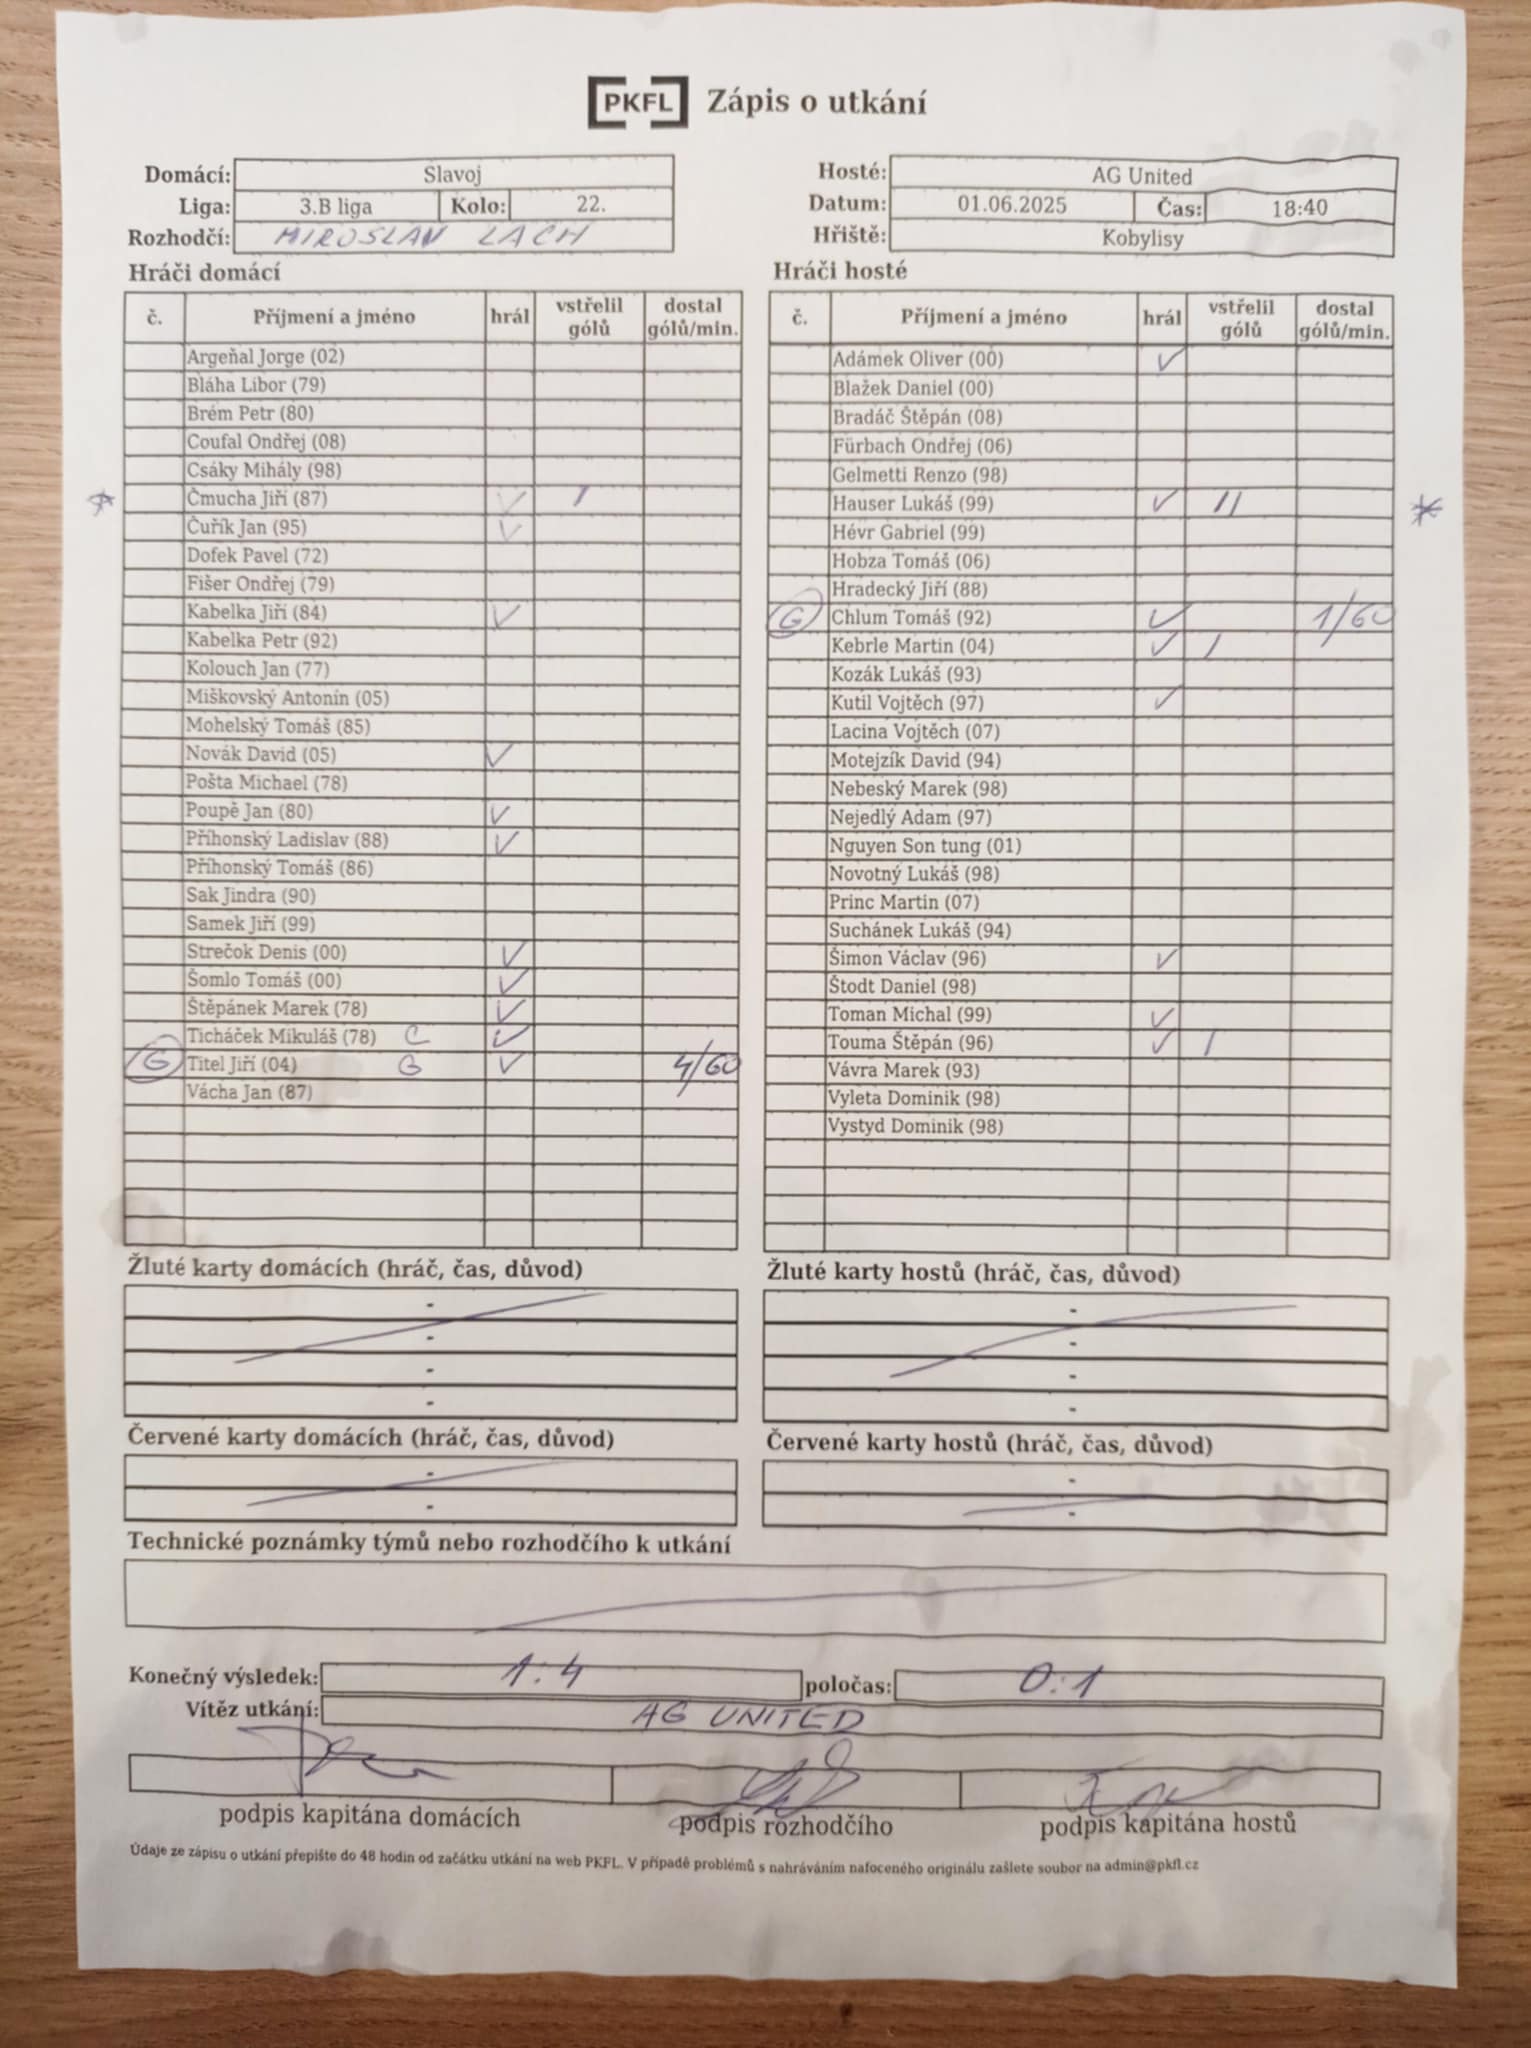 PKFL Zápis o utkání
Domácí: Slavoj
Liga: 3.B liga Kolo: 22.
Rozhodčí: MIROSLAV LACH
Hosté: AG United
Datum: 01.06.2025 Čas: 18:40
Hřiště: Kobylisy
Hráči domácí
č. Příjmení a jméno hrál vstřelil gólů dostal gólů/min.
Argeňal Jorge (02)
Bláha Libor (79)
Brém Petr (80)
Coufal Ondřej (08)
Csáky Mihály (98)
* Čmucha Jiří (87) ✓ I
Čuřík Jan (95) ✓
Dofek Pavel (72)
Fišer Ondřej (79)
Kabelka Jiří (84) ✓
Kabelka Petr (92)
Kolouch Jan (77)
Miškovský Antonín (05)
Mohelský Tomáš (85)
Novák David (05) ✓
Pošta Michael (78)
Poupě Jan (80) ✓
Příhonský Ladislav (88) ✓
Příhonský Tomáš (86)
Sak Jindra (90)
Samek Jiří (99)
Strečok Denis (00) ✓
Šomlo Tomáš (00) ✓
Štěpánek Marek (78) ✓
Ticháček Mikuláš (78) C ✓
G Titel Jiří (04) G ✓ 4/60
Vácha Jan (87)
Hráči hosté
č. Příjmení a jméno hrál vstřelil gólů dostal gólů/min.
Adámek Oliver (00) ✓
Blažek Daniel (00)
Bradáč Štěpán (08)
Fürbach Ondřej (06)
Gelmetti Renzo (98)
Hauser Lukáš (99) ✓ II *
Hévr Gabriel (99)
Hobza Tomáš (06)
Hradecký Jiří (88)
G Chlum Tomáš (92) ✓ 1/60
Kebrle Martin (04) ✓ I
Kozák Lukáš (93)
Kutil Vojtěch (97) ✓
Lacina Vojtěch (07)
Motejzík David (94)
Nebeský Marek (98)
Nejedlý Adam (97)
Nguyen Son tung (01)
Novotný Lukáš (98)
Princ Martin (07)
Suchánek Lukáš (94)
Šimon Václav (96) ✓
Štodt Daniel (98)
Toman Michal (99) ✓
Touma Štěpán (96) ✓ I
Vávra Marek (93)
Vyleta Dominik (98)
Vystyd Dominik (98)
Žluté karty domácích (hráč, čas, důvod)
-
-
-
-
Žluté karty hostů (hráč, čas, důvod)
-
-
-
-
Červené karty domácích (hráč, čas, důvod)
-
-
Červené karty hostů (hráč, čas, důvod)
-
-
Technické poznámky týmů nebo rozhodčího k utkání
Konečný výsledek: 1:4 poločas: 0:1
Vítěz utkání: AG UNITED
podpis kapitána domácích podpis rozhodčího podpis kapitána hostů
Údaje ze zápisu o utkání přepište do 48 hodin od začátku utkání na web PKFL. V případě problémů s nahráváním nafoceného originálu zašlete soubor na admin@pkfl.cz